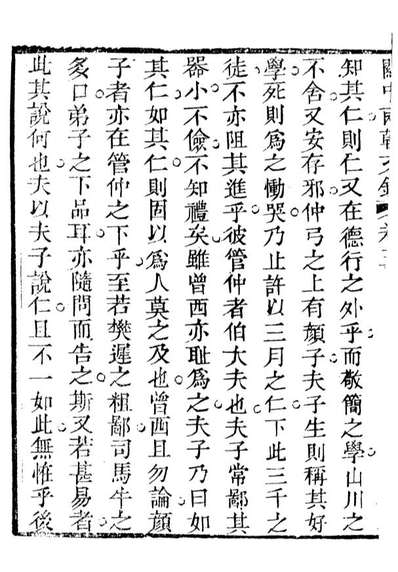 關中兩朝文鈔 卷二
知其仁則仁又在德行之外乎而敬簡之學山川之
不舍又安存邪仲弓之上有顏子夫子生則稱其好
學死則爲之慟哭乃止許以三月之仁下此三千之
徒不亦阻其進乎彼管仲者伯大夫也夫子常鄙其
器小不儉不知禮矣雖曾西亦恥爲之夫子乃曰如
其仁如其仁則固以爲人莫之及也曾西且勿論顏
子者亦在管仲之下乎至若樊遲之粗鄙司馬牛之
多口弟子之下品耳亦隨問而告之斯又若甚易者
此其說何也夫以夫子說仁且不一如此無惟乎後